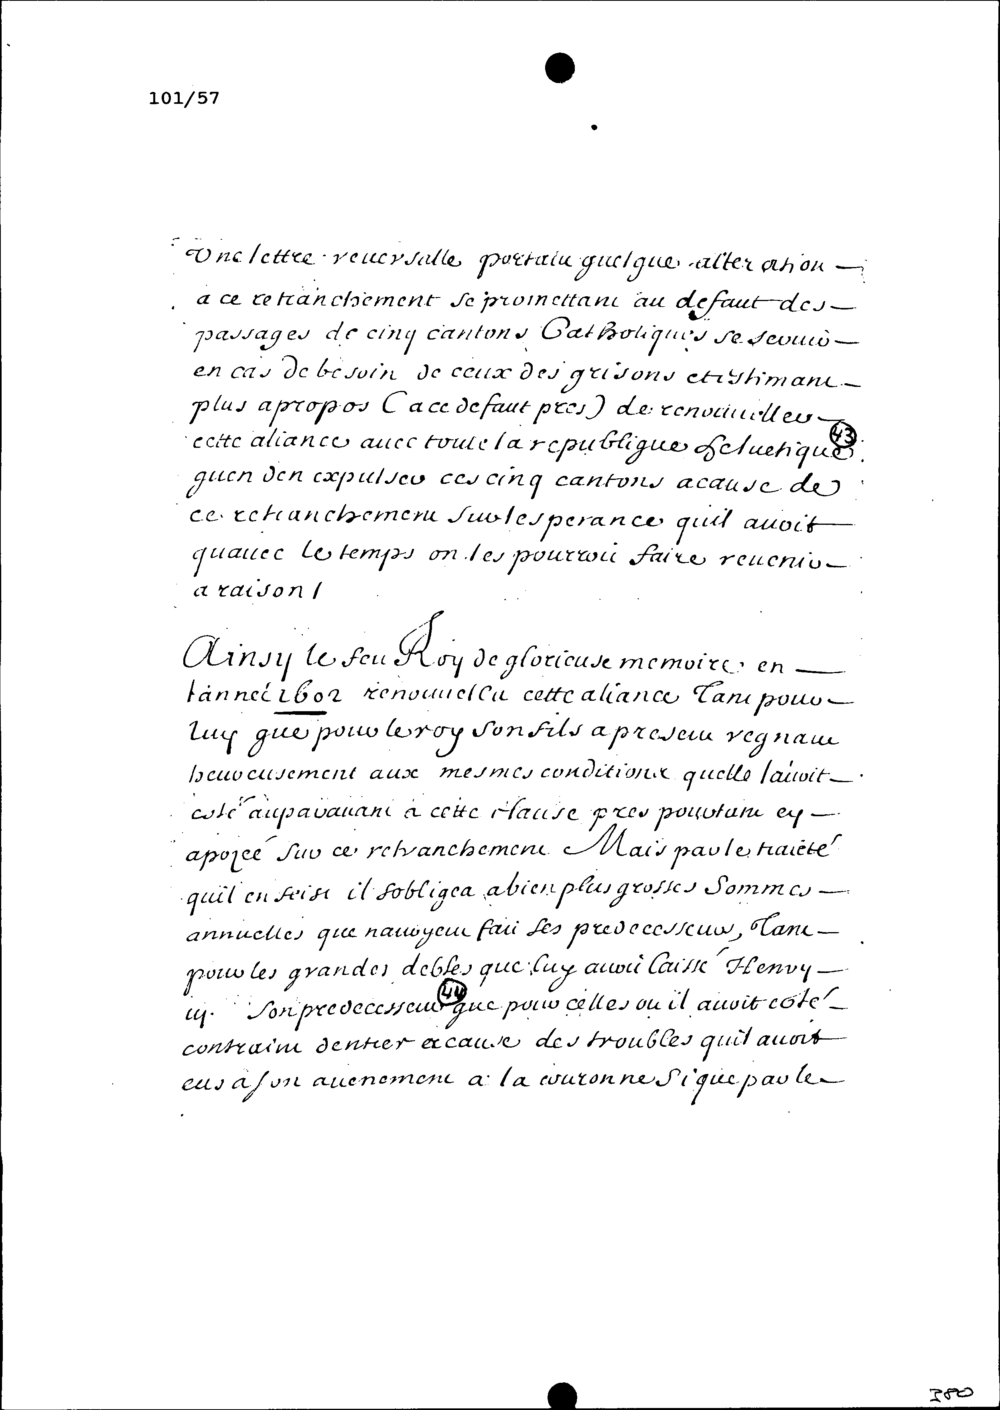 101/57
Une lettre reversalle portain quelque alteration
a ce retranchement se promettant au defaut des
passages de cinq cantons Catholiques se servir
en cas de besoin de ceux des grisons et estimant
plus apropos (a ce defaut pres) de renouveller
43
cette aliance avec toute la republique helvetique
quen den expulser ces cinq cantons acause de
ce retranchement sur lesperance quil avoit
quavec le temps on les pourroit faire revenir
a raison /
Ainsy le feu Roy de glorieuse memoire en
lannee 1602 renouvella cette aliance Tant pour
luy que pour le roy son fils apresent regnant
heureusement aux mesmes conditions quelle lavoit
esté auparavant a cette clause pres pourtant ey
apozee sur ce retranchement Mais par le traicté
quil en feist il sobligea abien plus grosses Sommes
annuelles que navoyent fait ses predecesseurs, Tant
pour les grandes debtes que luy avoit laissé Henry
44
iij. Son predecesseur que pour celles ou il avoit esté
contraint dentrer acause des troubles quil avoit
eus a son avenement a la couronne Si que par le
380